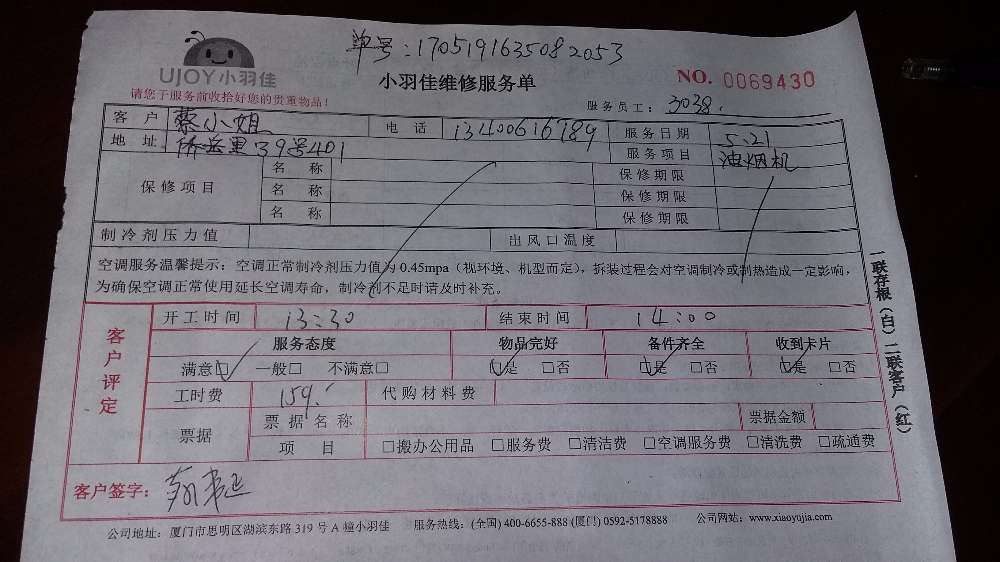 单号:1705191635082053
UJOY小羽佳
小羽佳维修服务单
NO. 0069430
请您于服务前收拾好您的贵重物品!
服务员工: 3038.
客户 蔡小姐 电话 13400616789 服务日期 5.21
地址 侨岳里39号401 服务项目 油烟机
保修项目 名称 保修期限
名称 保修期限
名称 保修期限
制冷剂压力值 出风口温度
空调服务温馨提示:空调正常制冷剂压力值为0.45mpa(视环境、机型而定),拆装过程会对空调制冷或制热造成一定影响,
为确保空调正常使用延长空调寿命,制冷剂不足时请及时补充。
客户评定
开工时间 13:30 结束时间 14:00
服务态度 物品完好 备件齐全 收到卡片
满意☑ 一般□ 不满意□ ☑是 □否 ☑是 □否 ☑是 □否
工时费 159. 代购材料费
票据 票据名称 票据金额
项目 □搬办公用品 □服务费 □清洁费 □空调服务费 □清洗费 □疏通费
客户签字:
公司地址:厦门市思明区湖滨东路319号A幢小羽佳 服务热线:(全国)400-6655-888 (厦门)0592-5178888 公司网站:www.xiaoyujia.com
一联存根(白)二联客户(红)